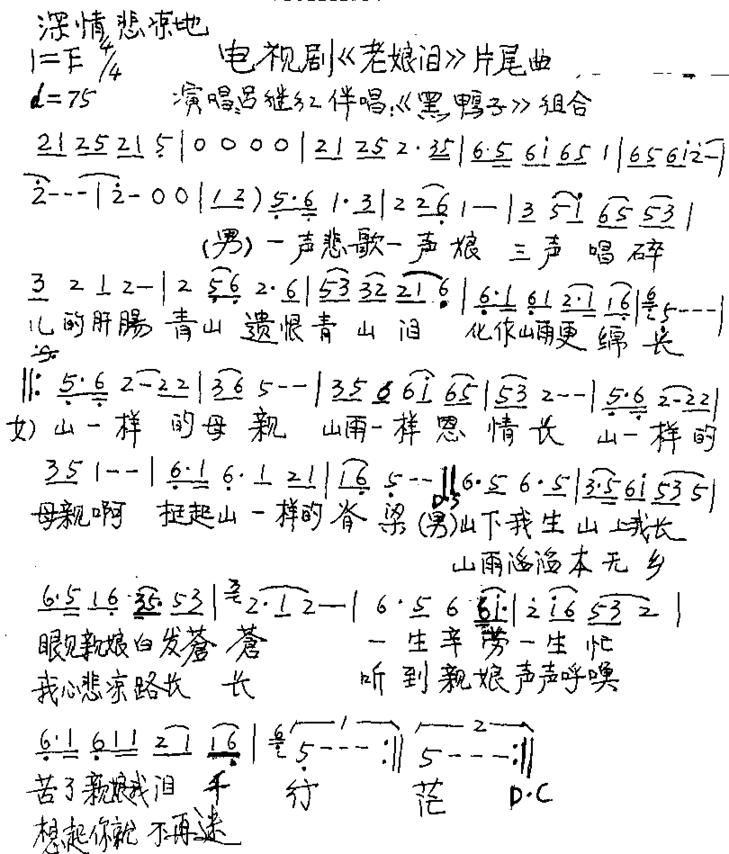 深情悲凉地
1=F 4/4 电视剧《老娘泪》片尾曲
♩=75 演唱:吕继红 伴唱:《黑鸭子》组合
21 25 21 5 | 0 0 0 0 | 21 25 2·35 | 6·5 6i 65 1 | 65 6i 2- |
2--- | 2- 0 0 | 12) 5·6 1·3 | 2 26 1-- | 3 5i 65 53 |
(男) 一声悲歌一声娘 三声唱碎
3 2 1 2- | 2 56 2·6 | 53 32 21 6 | 6·1 61 2·1 16 | 5--- |
儿的肝肠 青山遗恨青山泪 化作山雨更绵长
‖: 5·6 2-22 | 36 5-- | 35 6 6i 65 | 53 2-- | 5·6 2-22 |
女) 山一样的母亲 山雨一样恩情长 山一样的
35 1-- | 6·1 6·1 21 | 16 5-- ‖ 6·5 6·5 | 3·5 6i 53 5 |
D·S
母亲啊 挺起山一样的脊梁 (男) 山下我生山上我长
山雨滔滔本无乡
6·5 16 35· 53 | 2·1 2- | 6·5 6 6i· | 2 i6 53 2 |
眼见亲娘白发苍苍 一生辛劳一生忙
我心悲凉路长长 听到亲娘声声呼唤
6·1 611 21 16 | 5--- :‖ 5--- :‖
1 2
苦了亲娘我泪千行 茫 D·C
想起你就不再迷